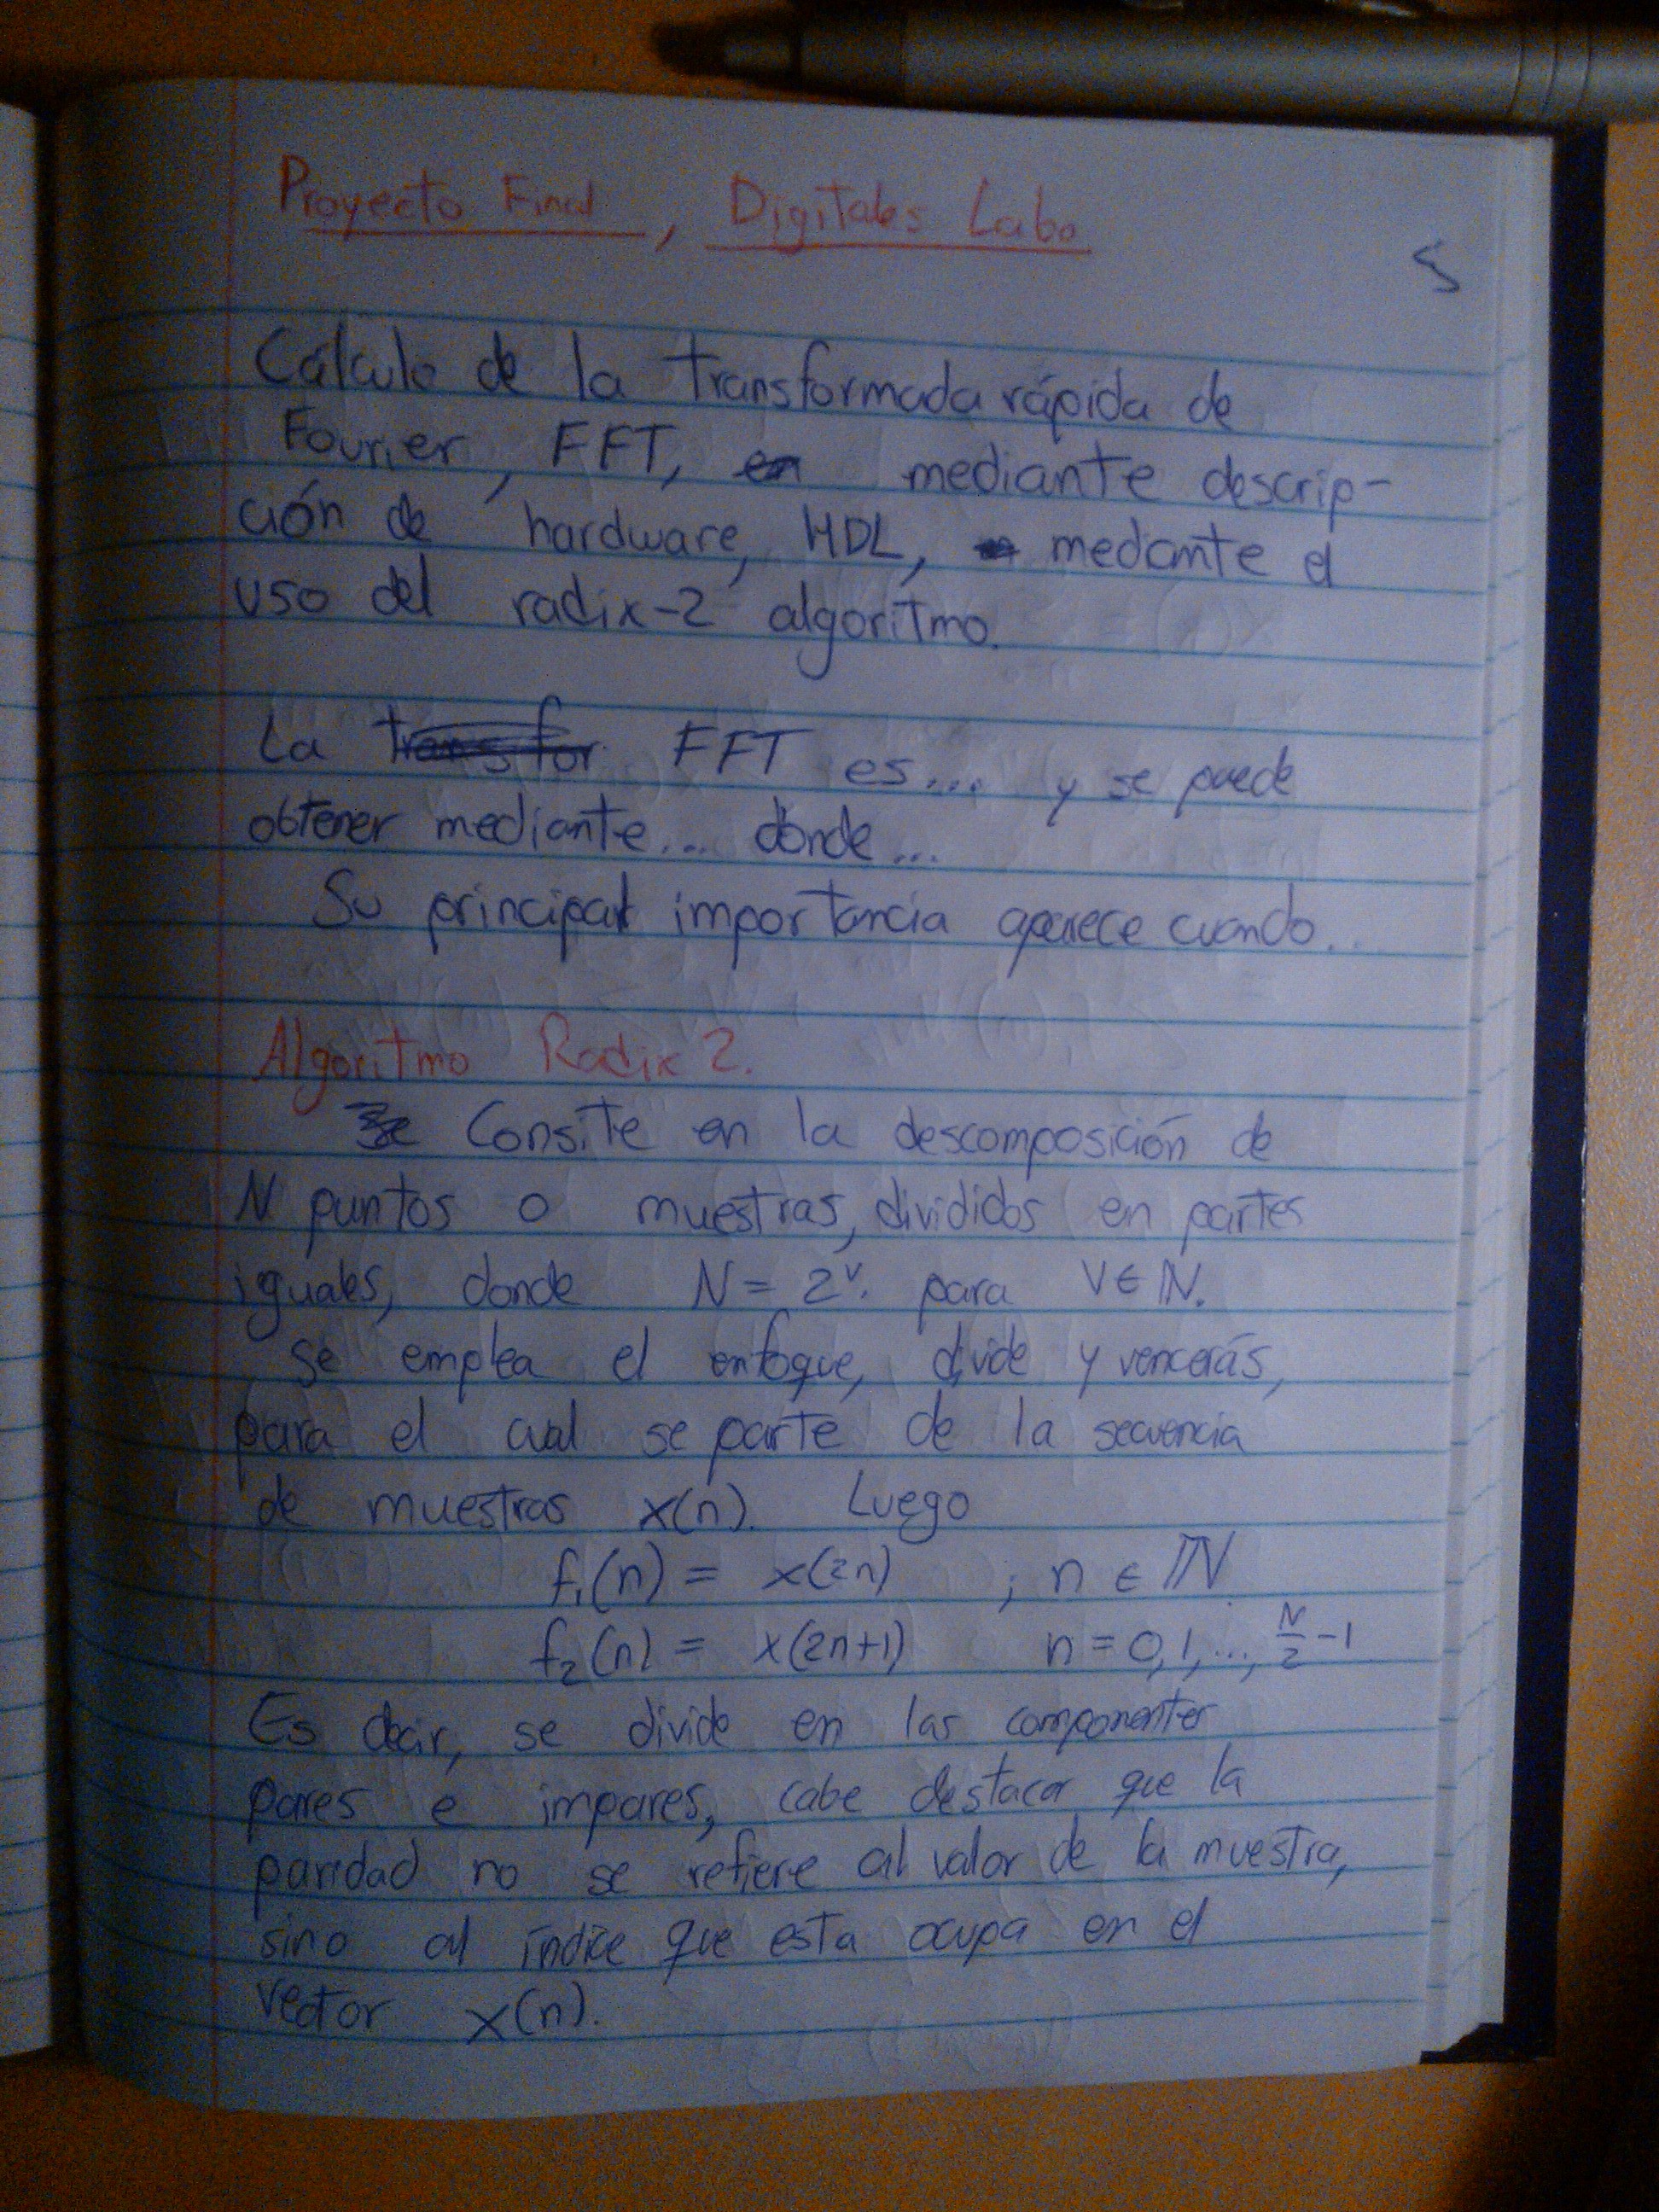 Proyecto Final, Digitales Labo
5
Cálculo de la Transformada rápida de
Fourier, FFT, en mediante descrip-
ción de hardware, HDL, mediante el
uso del radix-2 algoritmo.
La transfor FFT es... y se puede
obtener mediante... donde...
Su principal importancia aparece cuando...
Algoritmo Radix 2.
Se Consite en la descomposición de
N puntos o muestras, divididos en partes
iguales, donde N = 2^v. para V ∈ ℕ.
Se emplea el enfoque, divide y vencerás,
para el cual se parte de la secuencia
de muestras x(n). Luego
f₁(n) = x(2n) ; n ∈ ℕ
f₂(n) = x(2n+1) n = 0,1,..., N/2 -1
Es decir, se divide en las componentes
pares e impares, cabe destacar que la
paridad no se refiere al valor de la muestra,
sino al índice que esta ocupa en el
vector x(n).